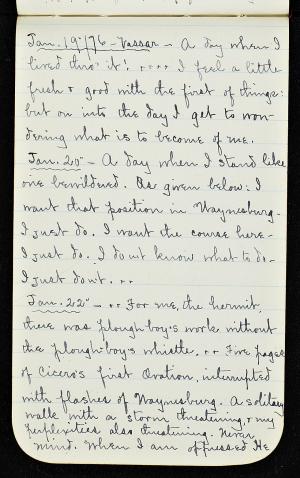 Jan. 19" /76 - Vassar - A day when I
lived thro' it! .... I feel a little
fresh & good with the first of things:
but on into the day I get to won-
dering what is to become of me.
Jan. 20" - A day when I stand like
one bewildured. As given below: I
want that position in Waynesburg -
I just do. I want the course here -
I just do. I don't know what to do -
I just don't. ..
Jan. 22" - .. For me, the hermit,
there was plough-boy's work without
the plough-boy's whistle. .. Five pages
of Cicero's first Oration, interrupted
with flashes of Waynesburg. A solitary
walk with a storm threatening, & my
perplexities also threatening. Never
mind. When I am oppressed He